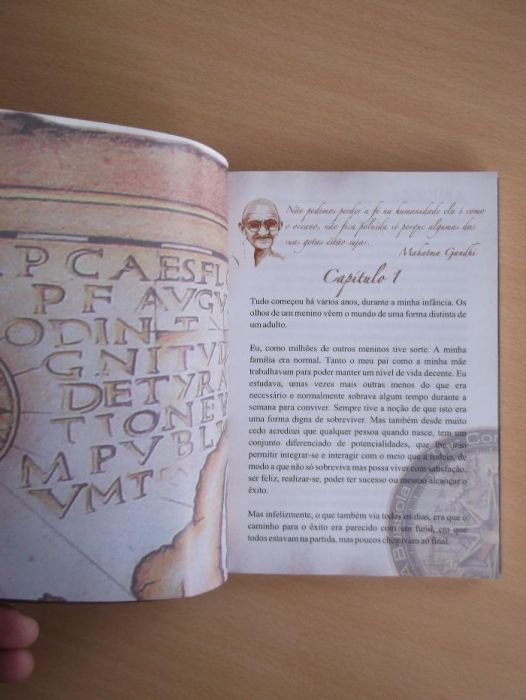 PCAESFL
PF AVGV
ODIN T
GNITVI
DETYRA
TIONEV
MPVBL
VMT
Não podemos perder a fé na humanidade ela é como
o oceano, não fica poluída só porque algumas das
suas gotas estão sujas.
Mahatma Gandhi
Capítulo 1
Tudo começou há vários anos, durante a minha infância. Os
olhos de um menino vêem o mundo de uma forma distinta de
um adulto.
Eu, como milhões de outros meninos tive sorte. A minha
família era normal. Tanto o meu pai como a minha mãe
trabalhavam para poder manter um nível de vida decente. Eu
estudava, umas vezes mais outras menos do que era
necessário e normalmente sobrava algum tempo durante a
semana para conviver. Sempre tive a noção de que isto era
uma forma digna de sobreviver. Mas também desde muito
cedo acreditei que qualquer pessoa quando nasce, tem um
conjunto diferenciado de potencialidades, que lhe irão
permitir integrar-se e interagir com o meio que a rodeia, de
modo a que não só sobreviva mas possa viver com satisfação,
ser feliz, realizar-se, poder ter sucesso ou mesmo alcançar o
êxito.
Mas infelizmente, o que também via todos os dias, era que o
caminho para o êxito era parecido com um funil, em que
todos estavam na partida, mas poucos chegavam ao final.